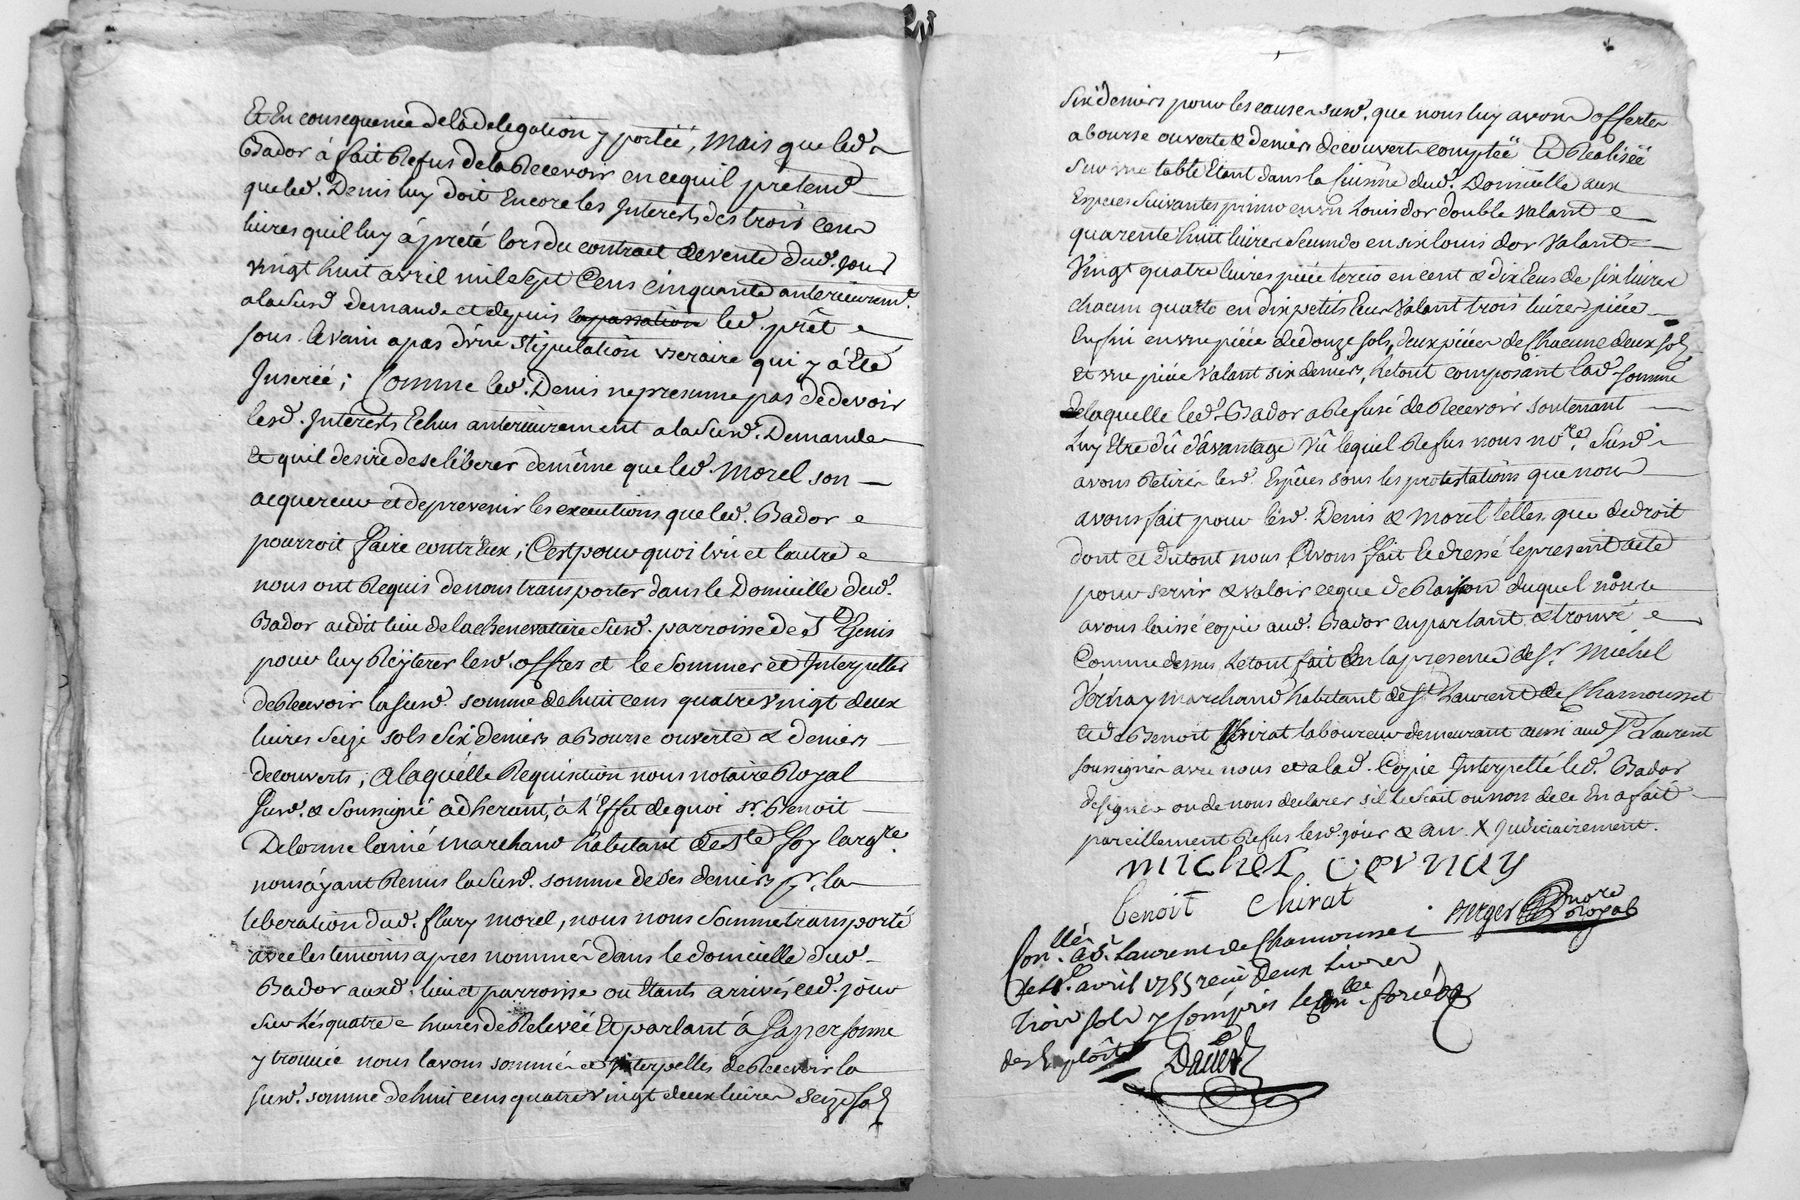 Et En consequence de la delegation y portéé, mais que led.
Bador à fait Refus de la Recevoir en cequil pretend
que led. Denis luy doit Encore les Interests des trois cens
livres quil luy à preté lors du contract de vente dud. jour
vingt huit avril mil sept Cens cinquante anterieurem.t
a la susd demande et depuis la passation led. prêt
sous levain apas d'vne stipulation vseraire qui y à Eté
Inseréé; Comme led. Denis ne presume pas de devoir
lesd. Interests Echus anterieurement a la susd. Demande
Et quil desire de se liberer demême que led. morel son
acquereur et de prevenir les executions que led. Bador
pourroit faire contr'Eux; C'est pour quoi l'vn et l'autre
nous ont Requis de nous transporter dans le Domicille dud.
Bador audit lieu de la chenevatiere susd. parroisse de St Genis
pour luy Reÿterer lesd. offres et le sommer et Interpeller
de Recevoir la susd. somme de huit cens quatre vingt deux
livres seize sols six deniers a Bourse ouverte & deniers
decouverts; a laquélle Requisition nous notaire Royal
susd. & soussigné adherant, à l'Effet de quoi sr. Benoit
Delorme lainé marchand habitant de Ste foy largre.
nous ayant Remis la susd. somme de ses deniers pr. la
liberation dud. fleury morel, nous nous sommes transporté
avec les temoins apres nommés dans le domicille dud.
Bador auxd. lieu et parroisse ou Etants arrivés ced. jour
sur lés quatre heures de Relevéé Et parlant à sa personne
y trouvéé nous l'avons sommé et interpellé de Recevoir la
susd. somme de huit cens quatre vingt deux livres seize sols
six deniers pour les causes susd. que nous luy avons offerte
a bourse ouverte & deniers decouverts comptéé Et Realiséé
sur vne table Etant dans la cuisine dud. Domicille aux
Especes suivantes primo en vn Louis dor double valant
quarente huit livres secundo en six louis dor valant
vingt quatre livres piéce tercio en cent & dix Ecus de six livres
chacun quarto en dix petits Ecus valant trois livres piéce
Enfin en vne piéce de douze sols, deux piéces de chacune deux sols
et vne piéce valant six deniers, le tout composant lad. somme
de laquelle led. Bador a Refusé de Recevoir soutenant
Luy Etre dû d'avantage vû lequel Refus nous no.re susd.
avons Retirés lesd. Espêces sous les protestations que nous
avons fait pour lésd. Denis & morel telles que de droit
dont et du tout nous avons fait et dressé le present acte
pour servir & valoir ceque de Raison duquel nous
avons laissé copie aud. Bador en parlant & trouvé
comme dessus le tout fait En la presence de Sr. Michel
Vernay marchand habitant de St Laurent de Chamousset
et de Benoit Chirat laboureur demeurant aussi aud St Laurent
soussignés avec nous et a lad. Copie Interpellé led. Bador
de signer ou de nous declarer s'il le scait ou non de ce En a fait
pareillement Refus lesd. jour & an. X judiciairement.
michel vernay
benoit chirat
Berger nore Royal
Con.llé a St. Laurent de Chamousset
le 4e. avril 1755 recû deux livres
trois sols y compris le con.lle
de l'Exploit